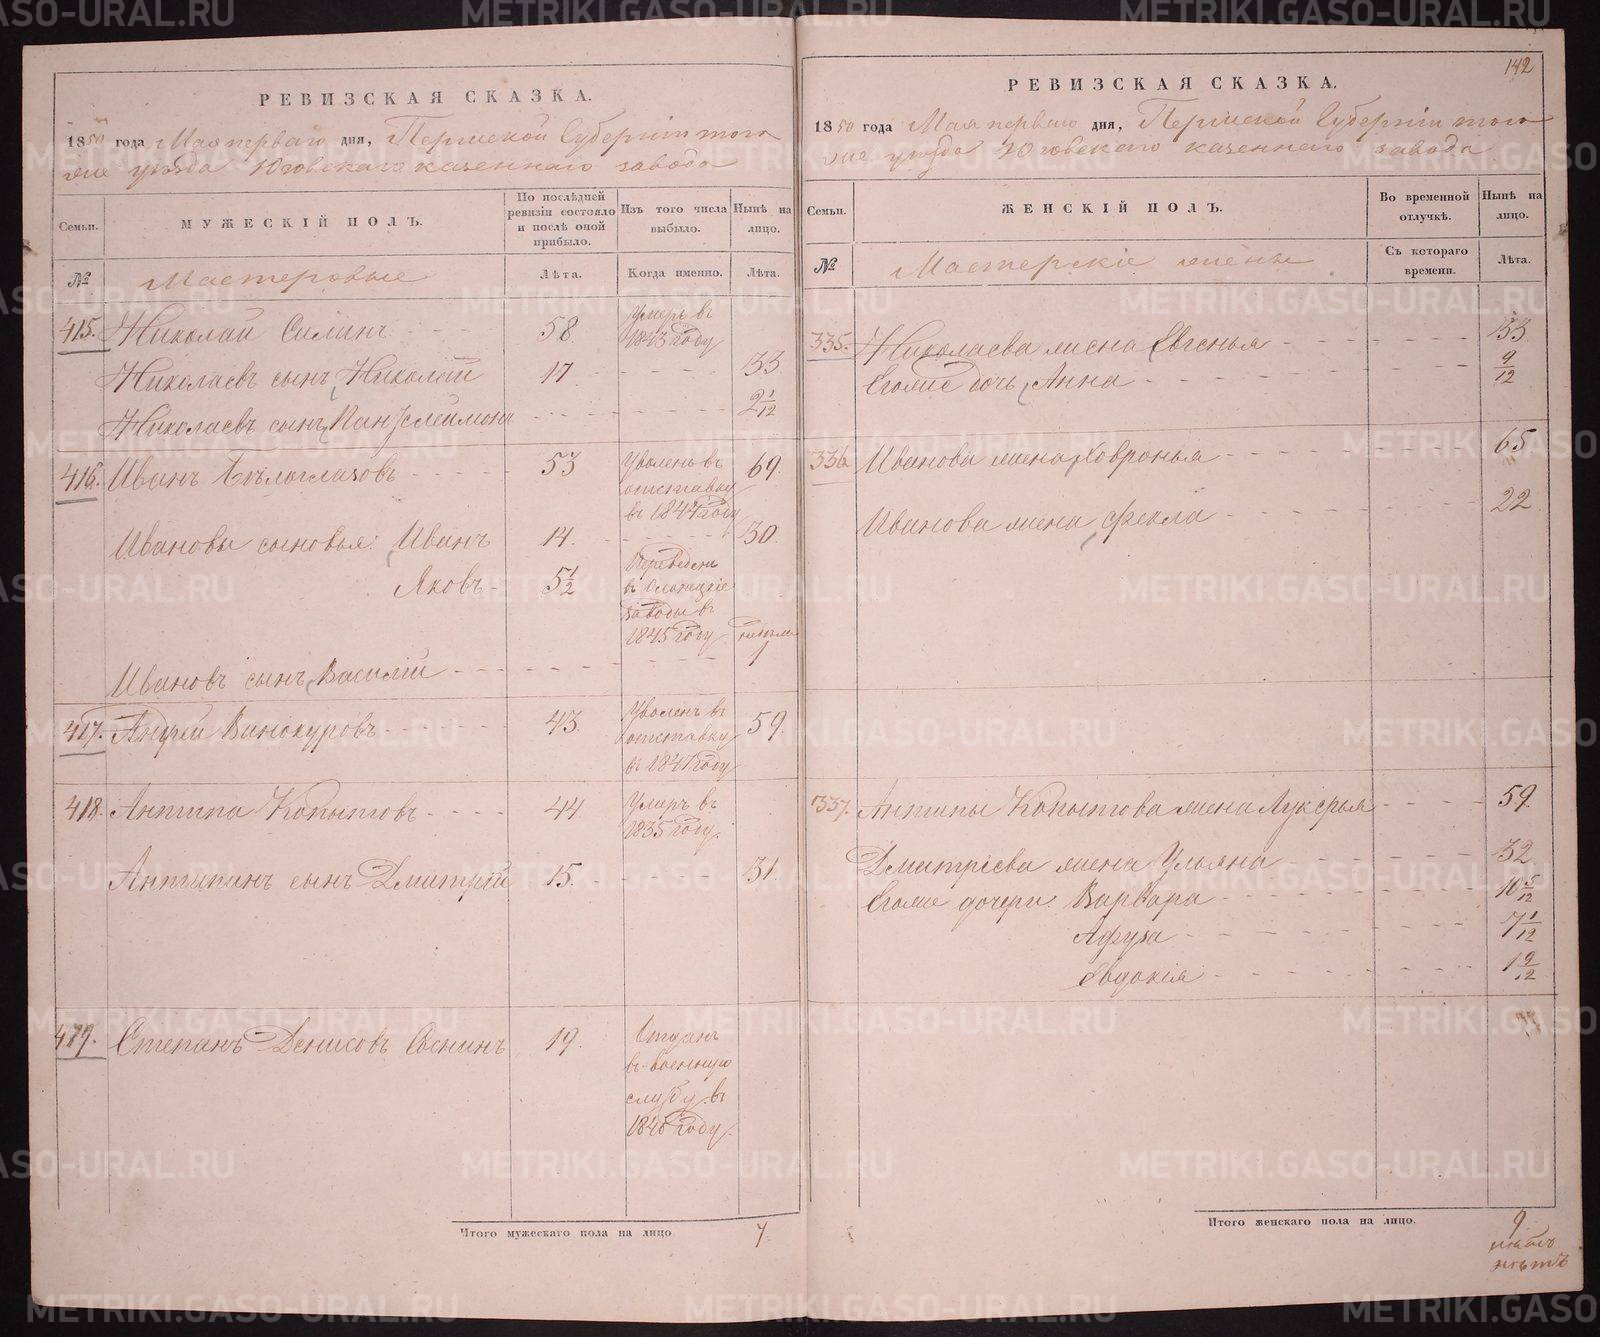 РЕВИЗСКАЯ СКАЗКА.
1850 года Мая перваго дня, Пермской Губернiи того
же уѣзда Юговскаго казеннаго завода
Семьи.
МУЖЕСКIЙ ПОЛЪ.
По послѣдней ревизiи состояло и послѣ оной прибыло.
Изъ того числа выбыло.
Нынѣ на лицо.
№
Мастеровые
Лѣта.
Когда именно.
Лѣта.
415. Николай Силинъ 58 Умеръ въ 1843 году
Николаевъ сынъ Николай 17 33
Николаевъ сынъ Пантелеймонъ 2 1/12
416. Иванъ Бѣлоглазовъ 53 Уволенъ въ отставку въ 1847 году 69.
Ивановы сыновья: Иванъ 14. 30
Яковъ 5 1/2 Переведенъ въ Олонецкiе заводы въ 1845 году
Ивановъ сынъ Василiй 1
417. Андрей Винокуровъ 43. Уволенъ въ отставку въ 1847 году 59.
418. Антипа Копытовъ 44 Умеръ въ 1835 году.
Антипинъ сынъ Дмитрiй 15. 31.
419. Степанъ Денисовъ Соснинъ 19. Отданъ въ военную службу въ 1840 году.
Итого мужескаго пола на лицо 7
142
РЕВИЗСКАЯ СКАЗКА.
1850 года Мая перваго дня, Пермской Губернiи того
же уѣзда Юговскаго казеннаго завода
Семьи.
ЖЕНСКIЙ ПОЛЪ.
Во временной отлучкѣ.
Нынѣ на лицо.
№
Мастерскiе жены
Съ котораго времени.
Лѣта.
335. Николаева жена Евгенья 33
Егоже дочь Анна 9/12
336. Иванова жена Ховронья 65
Иванова жена Фекла 22
337. Антипы Копытова жена Лукерья 59.
Дмитрiева жена Ульяна 32
Егоже дочери: Варвара 10 5/12
Афуза 7 1/12
Евдокiя 1 9/12
Итого женскаго пола на лицо. 9
METRIKI.GASO-URAL.RU